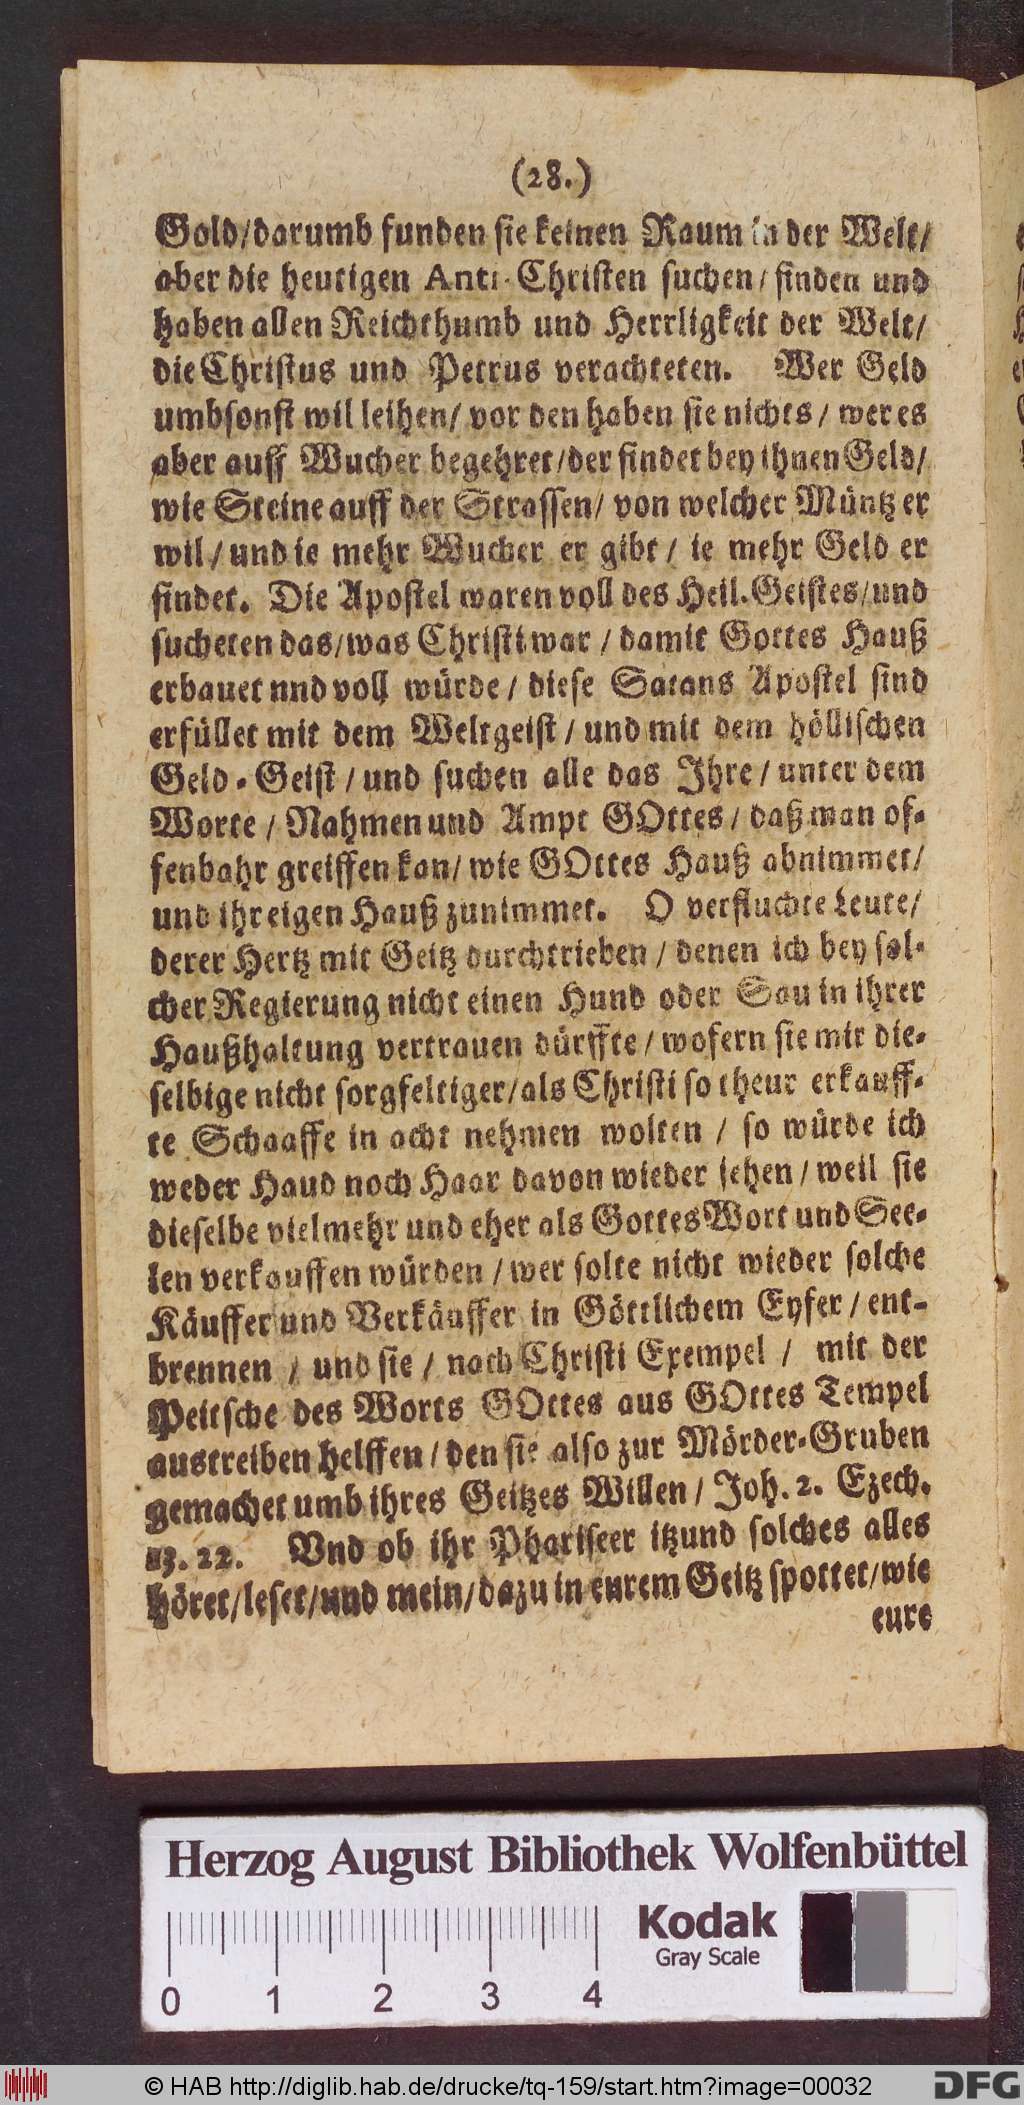 (28.)
Gold/darumb funden sie keinen Raum in der Welt/
aber die heutigen Anti-Christen suchen/ finden und
haben allen Reichthumb und Herrligkeit der Welt/
die Christus und Petrus verachteten. Wer Geld
umbsonst wil leihen/ vor den haben sie nichts / wer es
aber auff Wucher begehret/der findet bey ihnen Geld/
wie Steine auff der Strassen/ von welcher Müntz er
wil/ und ie mehr Wucher er gibt / ie mehr Geld er
findet. Die Apostel waren voll des Heil. Geistes/und
sucheten das/was Christi war / damit Gottes Hauß
erbauet nnd voll würde / diese Satans Apostel sind
erfüllet mit dem Weltgeist / und mit dem höllischen
Geld-Geist / und suchen alle das Ihre / unter dem
Worte / Nahmen und Ampt GOttes / daß man of-
fenbahr greiffen kan/ wie GOttes Hauß abnimmet/
und ihr eigen Hauß zunimmet. O verfluchte Leute/
derer Hertz mit Geitz durchtrieben / denen ich bey sol-
cher Regierung nicht einen Hund oder Sau in ihrer
Haußhaltung vertrauen dürffte / wofern sie mir die-
selbige nicht sorgfeltiger/als Christi so theur erkauff-
te Schaaffe in acht nehmen wolten / so würde ich
weder Haud noch Haar davon wieder sehen / weil sie
dieselbe vielmehr und eher als Gottes Wort und See-
len verkauffen würden / wer solte nicht wieder solche
Käuffer und Verkäuffer in Göttlichem Eyfer / ent-
brennen / und sie / nach Christi Exempel / mit der
Peitsche des Worts GOttes aus GOttes Tempel
austreiben helffen / den sie also zur Mörder-Gruben
gemachet umb ihres Geitzes Willen / Joh. 2. Ezech.
13. 22. Vnd ob ihr Phariseer itzund solches alles
höret/leset/und mein/dazu in eurem Geitz spottet/wie
eure
Herzog August Bibliothek Wolfenbüttel
Kodak
Gray Scale
0 1 2 3 4
© HAB http://diglib.hab.de/drucke/tq-159/start.htm?image=00032
DFG